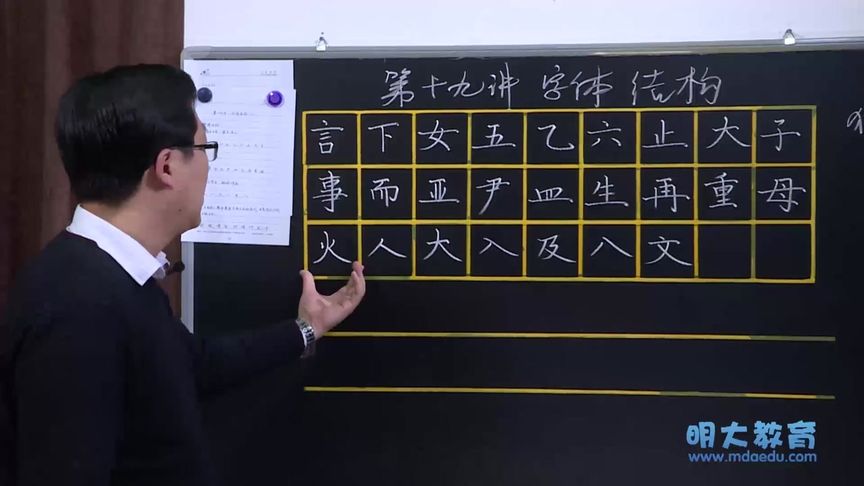 第十九讲 字体 结构
言 下 女 五 乙 六 止 大 子
事 而 亚 尹 皿 生 再 重 母
火 人 大 入 及 八 文
明大教育
www.mdaedu.com